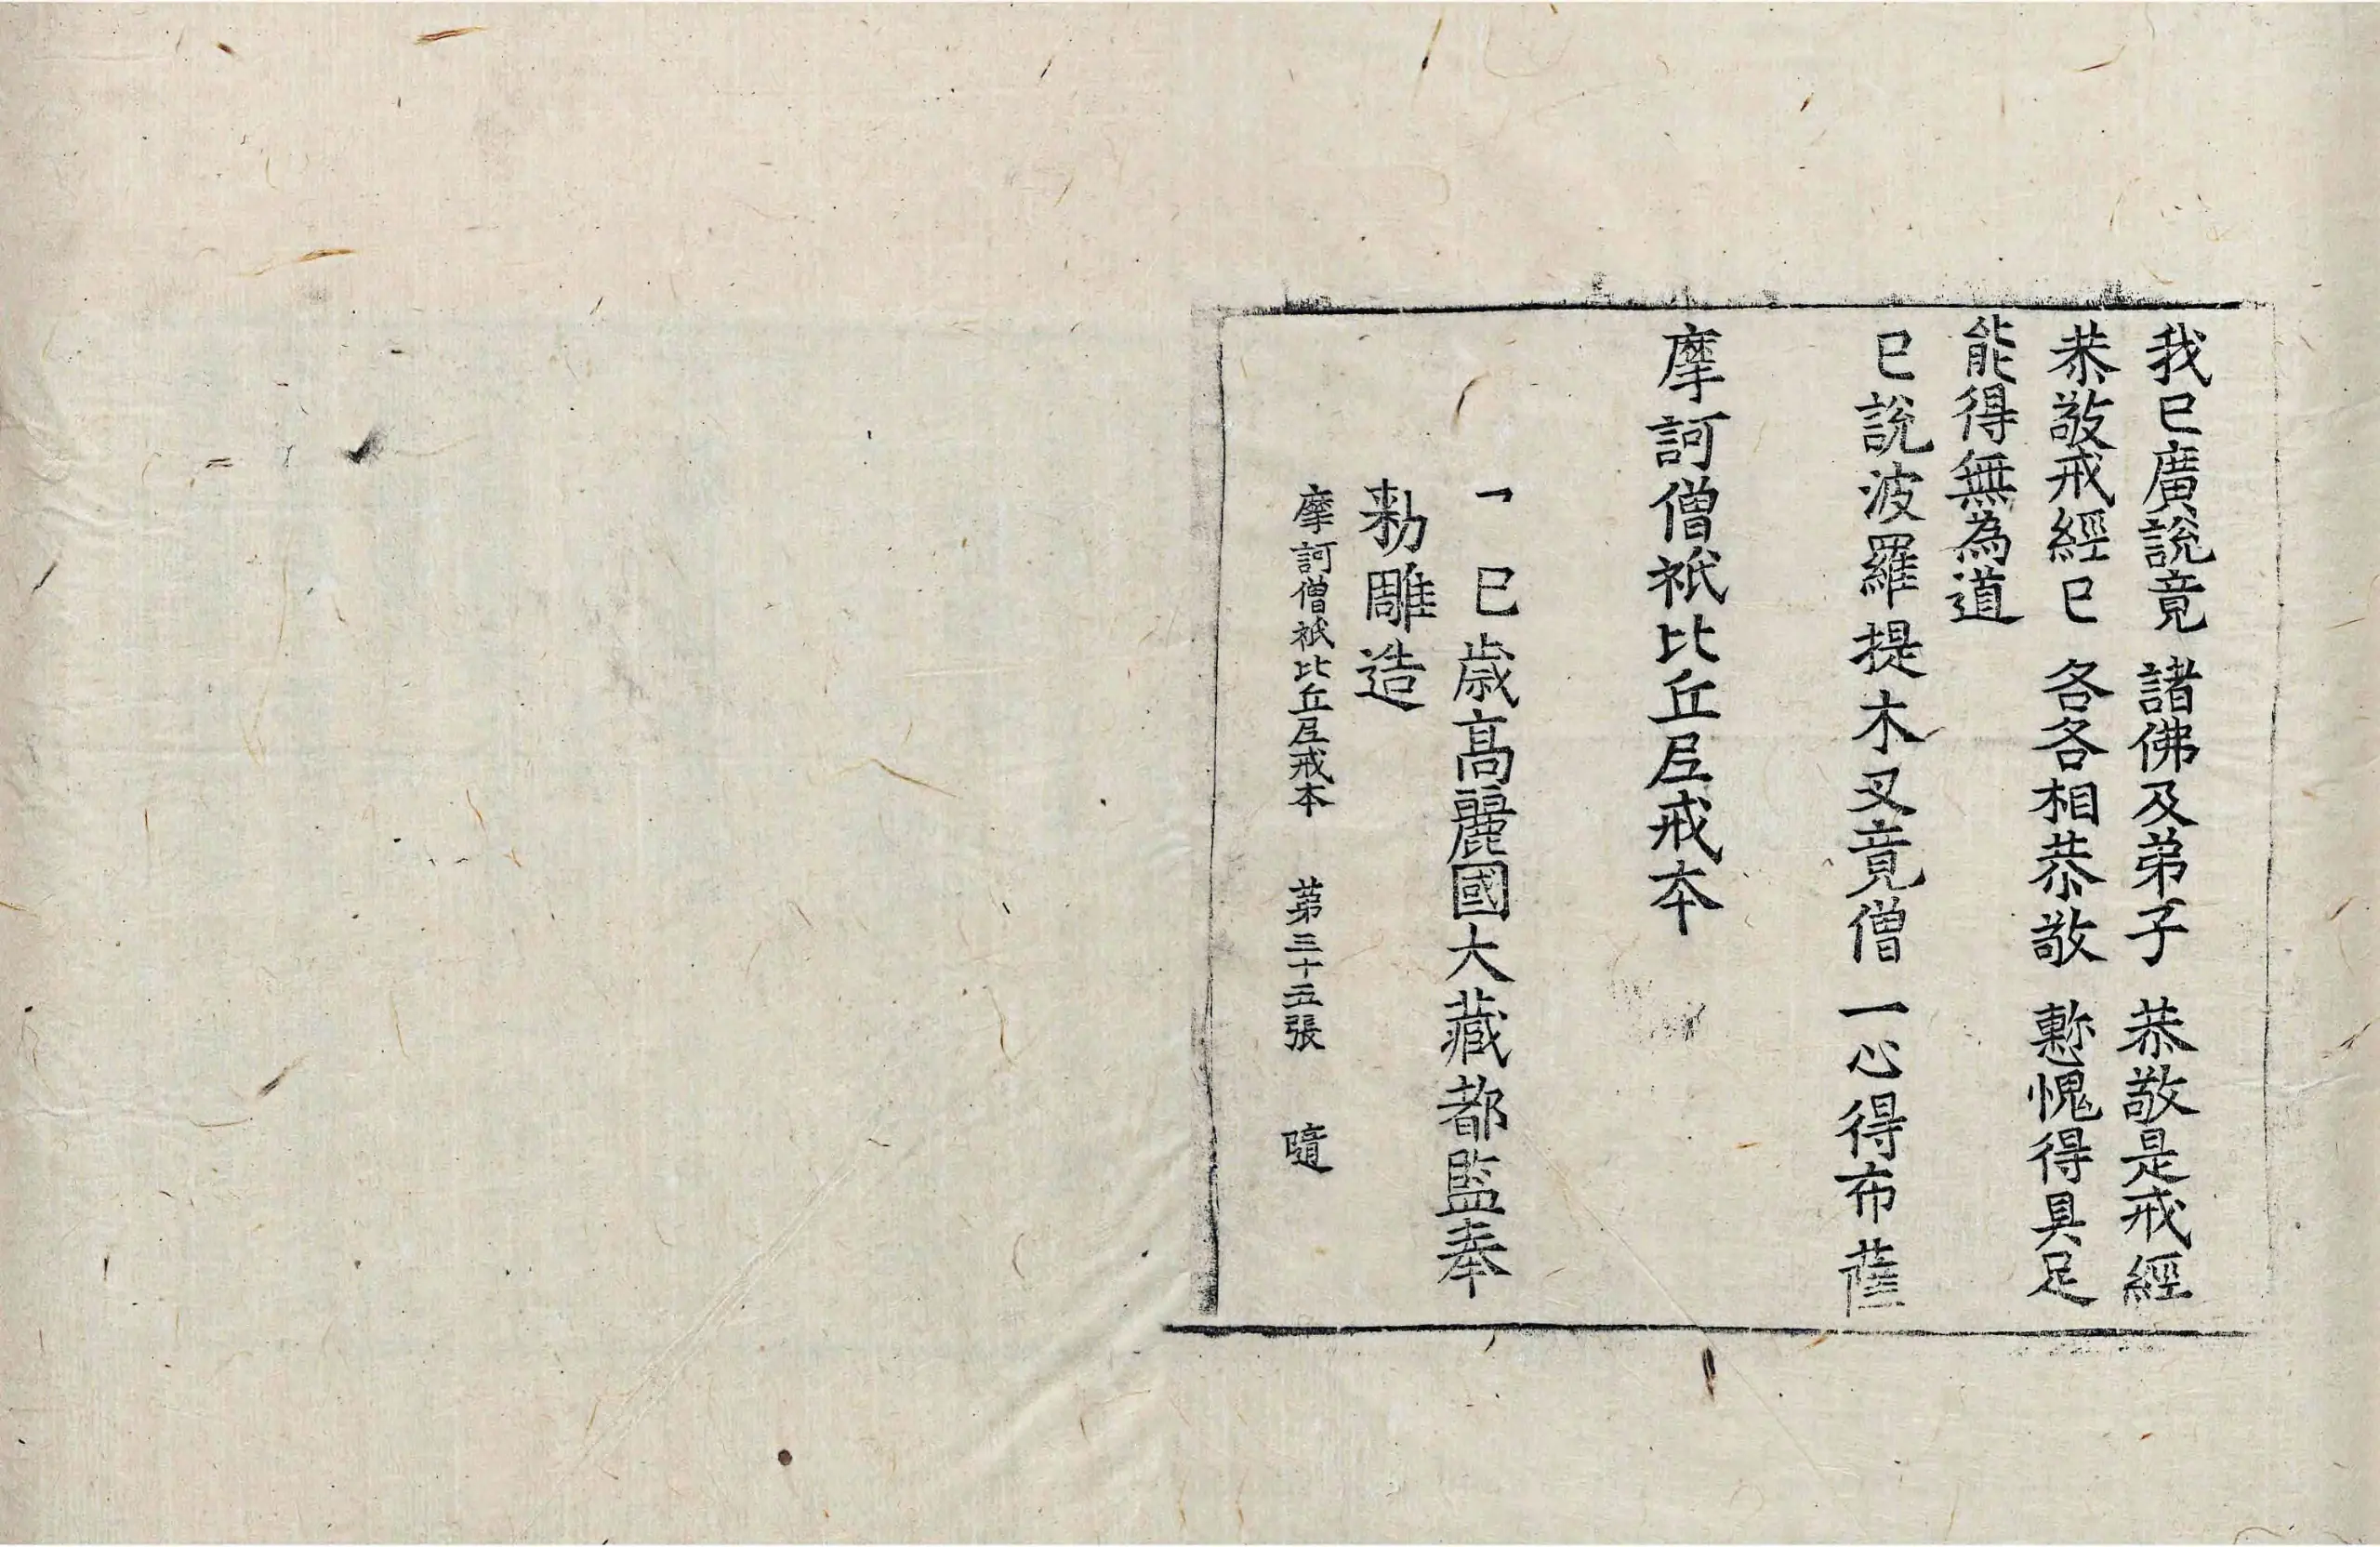 我已廣說竟 諸佛及弟子 恭敬是戒經
恭敬戒經已 各各相恭敬 慙愧得具足
能得無為道
已說波羅提木叉竟僧一心得布薩
摩訶僧祇比丘尼戒本
巳歲高麗國大藏都監奉
勑雕造
摩訶僧祇比丘尼戒本 第三十五張 隨